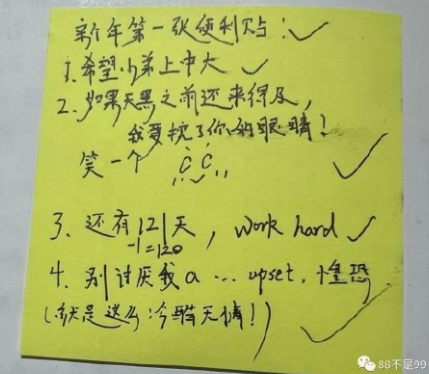 新年第一张便利贴: ✓
1. 希望小弟上中大 ✓
2. 如果天黑之前还来得及,
我要挖了你的眼睛!
笑一个 ✓
3. 还有121天, work hard ✓
-1=120
4. 别讨厌我a … upset, 惶恐
(就是这么冷酷无情!) ✓
88不是99